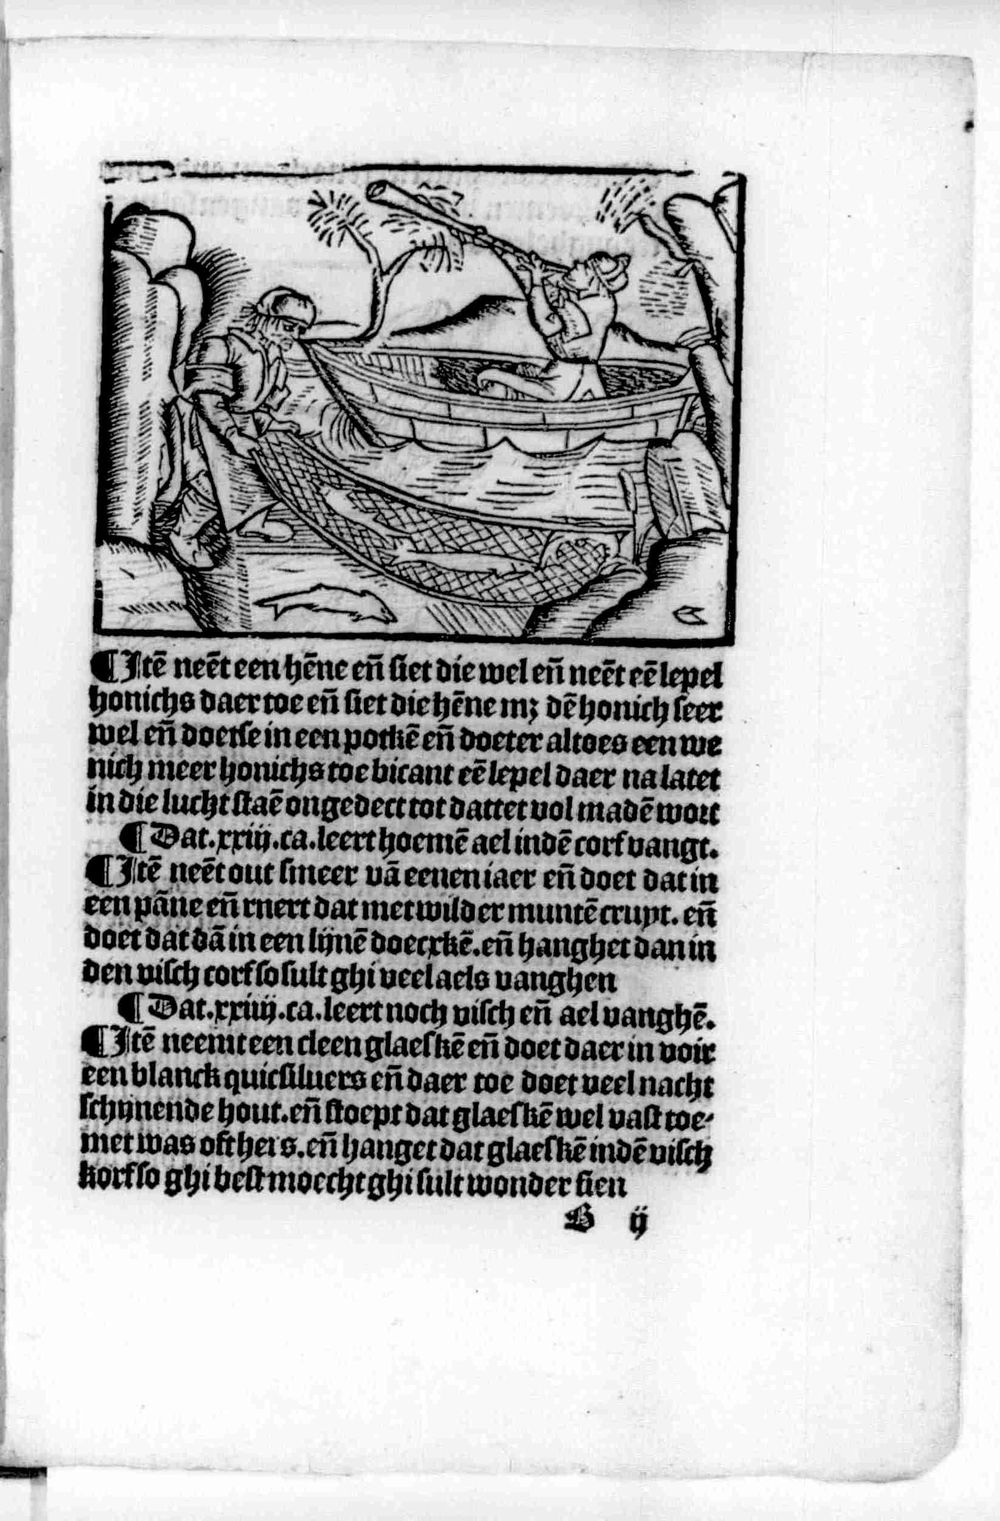 ¶ Itē neēt een hēne eñ siet die wel eñ neēt eē lepel
honichs daer toe eñ siet die hēne mꝫ dē honich seer
wel eñ doetse in een potkē eñ doeter altoes een we
nich meer honichs toe bicant eē lepel daer na latet
in die lucht staē ongedect tot dattet vol madē wort
¶ Dat.xxiij.ca.leert hoemē ael indē corf vangt.
¶ Itē neēt out smeer vā eenen iaer eñ doet dat in
een pāne eñ rnert dat met wilder muntē cruyt. eñ
doet dat dā in een lijnē doecxkē.eñ hanghet dan in
den visch corf so sult ghi veel aels vanghen
¶ Dat.xxiiij.ca.leert noch visch eñ ael vanghē.
¶ Itē neemt een cleen glaeskē eñ doet daer in voir
een blanck quicsilvers eñ daer toe doet veel nacht
schijnende hout.eñ stoept dat glaeskē wel vast toe
met was oft hers.eñ hanget dat glaeskē indē visch
korf so ghi best moecht ghi sult wonder sien
B ij